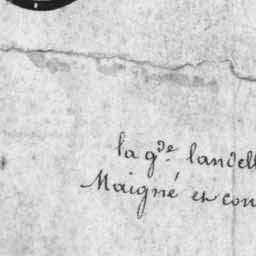 la g.de landell
Maigné et con